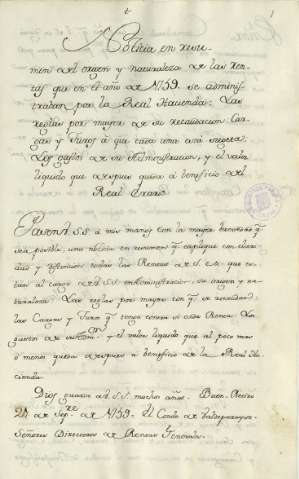 Noticia en resu-
men del origen y naturaleza de las ren-
tas que en el año de 1759. se adminis-
traban por la Real Hacienda: Las
reglas por mayor de su recaudacion Car-
gas y Juros à que cada una está sugeta
Los gastos de su Administracion, y el valor
liquido que despues queda à beneficio del
Real Erario.
Passará S.S. a mis manos con la mayor brevedad q.e
sea posible, una noticia en resumen q.e explique con clari-
dad y distincion todas las Rentas de S.M. que co-
rren al cargo de S.S. en Administracion, su origen y na-
turaleza: Las reglas por mayor con q.e se recaudan
las Cargas y Juros q.e tenga contra si cada Renta: Los
gastos de su Adm.on y el valor liquido que al poco mas
ò menos queda despues à beneficio de la Real Ha-
cienda.
Dios guarde à S.S. muchos años. Buen Retiro
de Sep.re de 1759. El Conde de Valdeparayso.
Señores Directores de Rentas Generales.